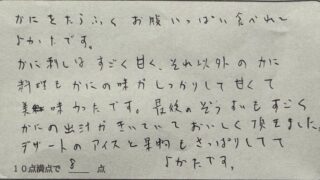 かにをたらふくお腹いっぱい食べれて
よかたです。
かに刺しはすごく甘く、それ以外のかに
料理もかにの味がしっかりして甘くて
美味かたです。最後のぞうすいもすごく
かにの出汁がきいていておいしく頂きました。
デザートのアイスと果物もさっぱりしてて
よかたです。
10点満点で 8 点